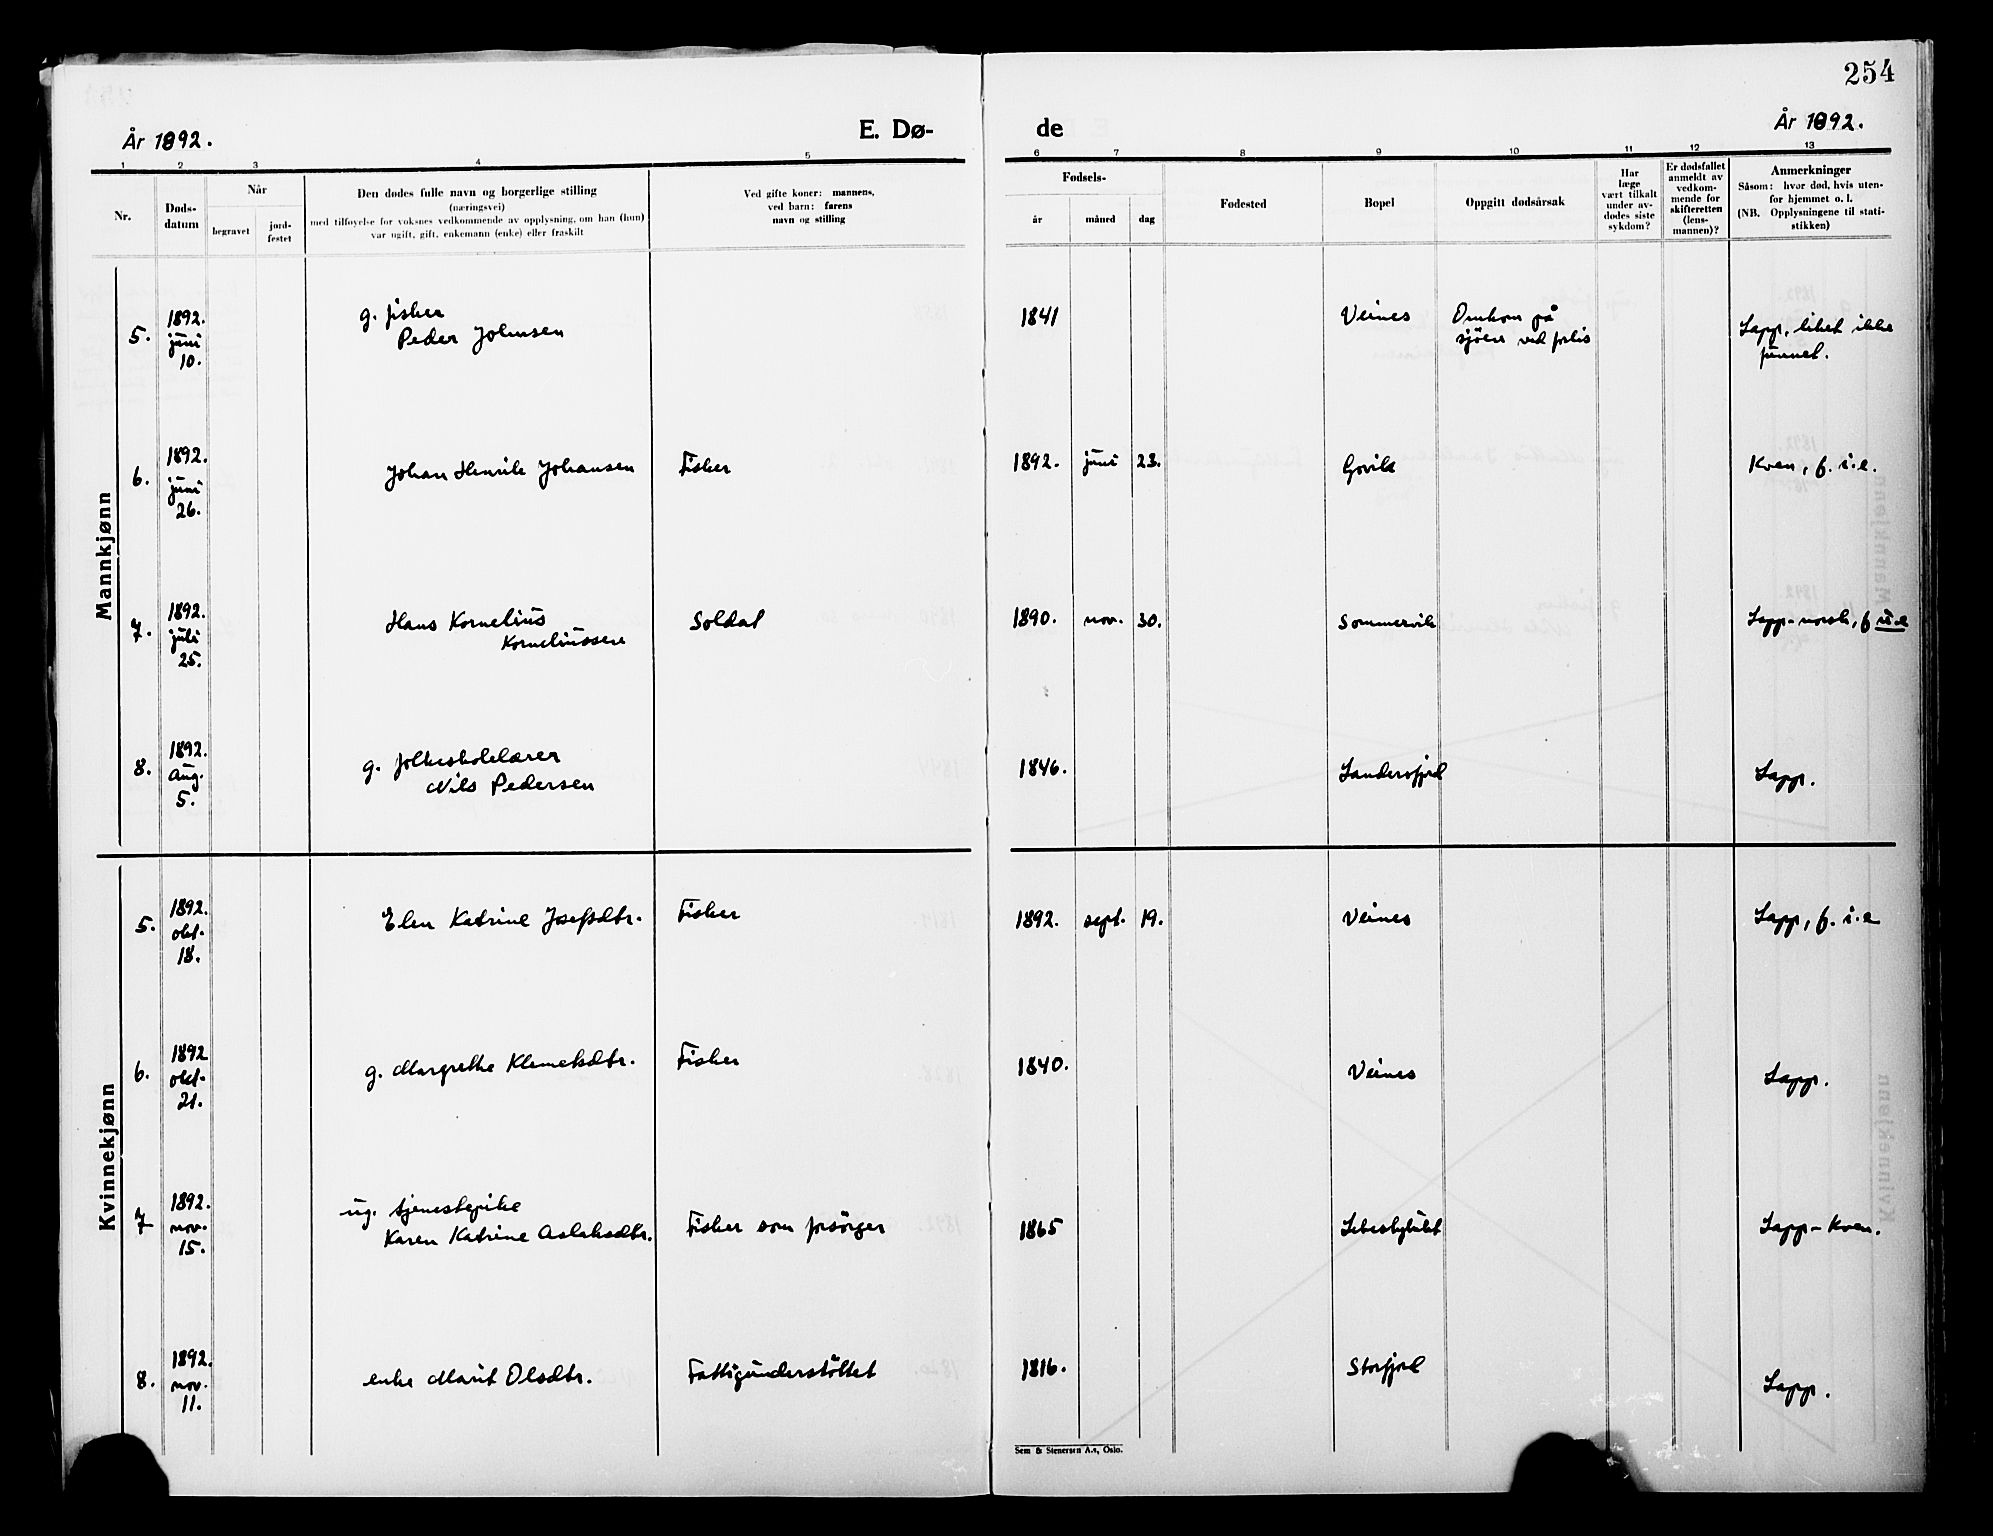 254
År 1892.
E. Dø-
de
År 1892.
1 2 3 4 5
6 7 8 9 10 11 12 13
Nr.
Døds-
datum
Når
begravet
jord-
festet
Den dødes fulle navn og borgerlige stilling
(næringsvei)
med tilføyelse for voksnes vedkommende av opplysning, om han (hun)
var ugift, gift, enkemann (enke) eller fraskilt
Ved gifte koner: mannens,
ved barn: farens
navn og stilling
Fødsels-
år
måned
dag
Fødested
Bopel
Oppgitt dødsårsak
Har
læge
vært tilkalt
under av-
dødes siste
sykdom?
Er dødsfallet
anmeldt av
vedkom-
mende for
skifteretten
(lens-
mannen)?
Anmerkninger
Såsom: hvor død, hvis uten-
for hjemmet o. l.
(NB. Opplysningene til stati-
stikken)
Mannkjønn
5.
1892.
juni
10.
g. fisker
Peder Johnsen
1841
Veines
Omkom på
sjöen ved forlis
Lapp, liket ikke
funnet.
6.
1892.
juni
26.
Johan Henrik Johansen
Fisker
1892. juni 23.
Govik
Kven, f. i.e.
7.
1892.
juli
25.
Hans Kornelius
Korneliussen
Soldat
1890. nov. 30.
Sommervik
Lapp-norsk, f u.e
8.
1892.
aug.
5.
g. folkeskolelærer
Nils Pedersen
1846.
Landersfjord
Lapp.
Kvinnekjønn
5.
1892.
okt.
18.
Elen Katrine Josefsdtr.
Fisker
1892. sept. 19.
Veines
Lapp, f. i.e
6.
1892
okt.
21.
g. Margrethe Klemetsdtr.
Fisker
1840.
Veines
Lapp.
7
1892.
nov.
15.
ug. tjenestepike
Karen Katrine Aslaksdtr.
Fisker som forsörger
1865
Lebesbybukt
Lapp-Kven.
8.
1892.
nov.
11.
enke Marit Olsdtr.
Fattigunderstöttet
1816.
Storfjord
Lapp.
Sem & Stenersen A.s, Oslo.